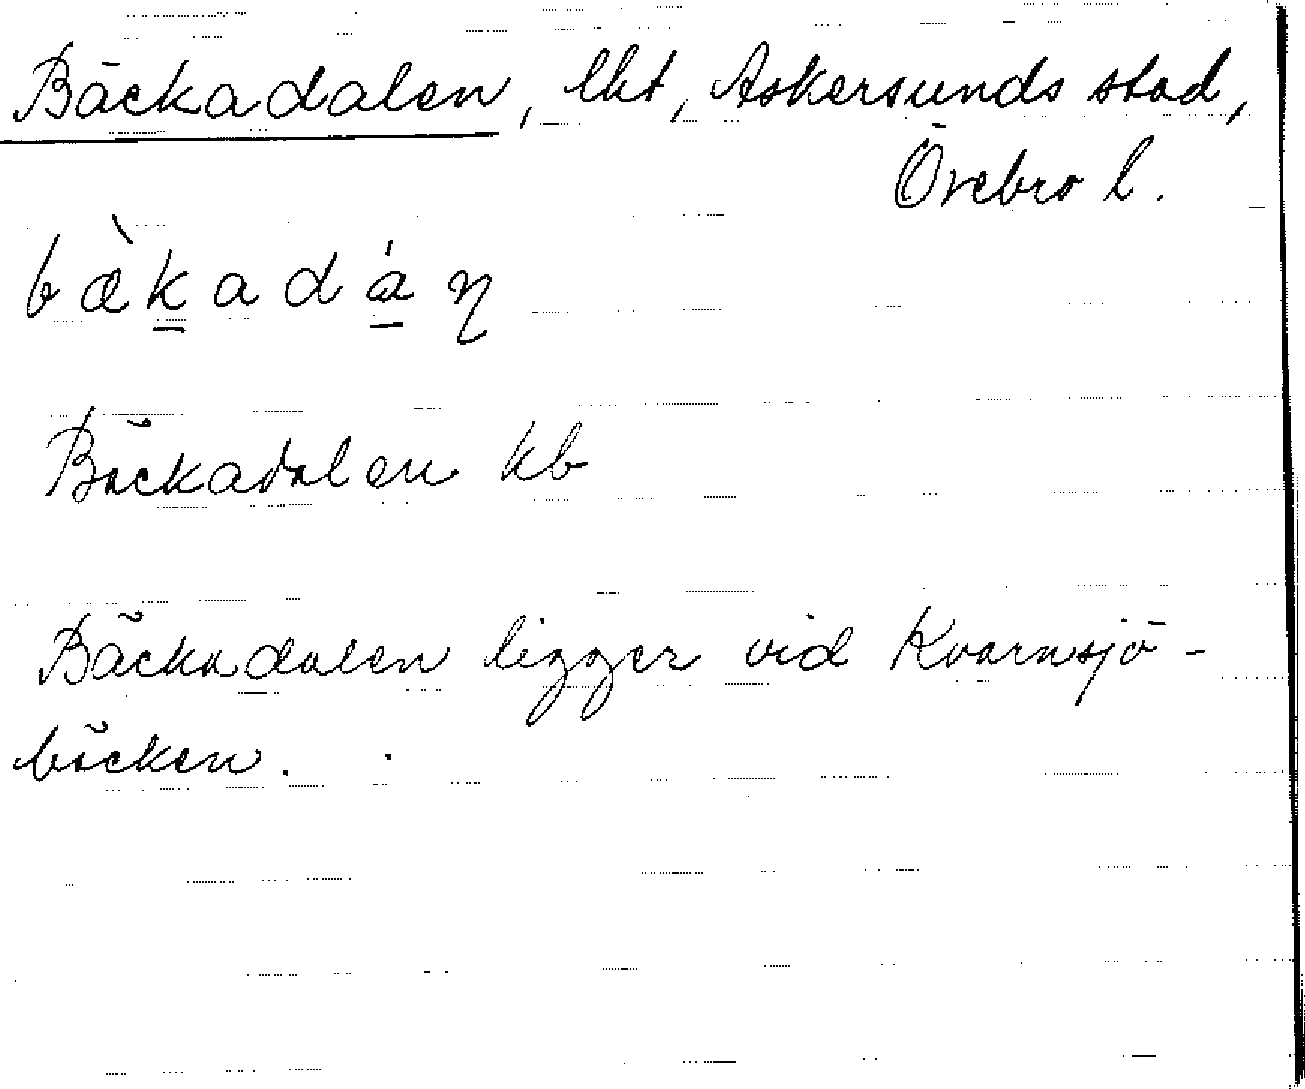 Bäckadalen, lht, Askersunds stad,
Örebro l.
bæ̀k̲adá̲ƞ
Bäckadalen kb
Bäckadalen ligger vid Kvarnsjö-
bäcken.